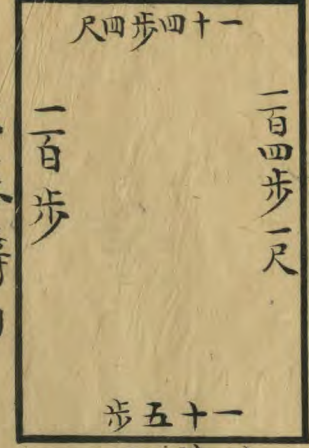 一十四步四尺
二百四步一尺
二百步
一十五步